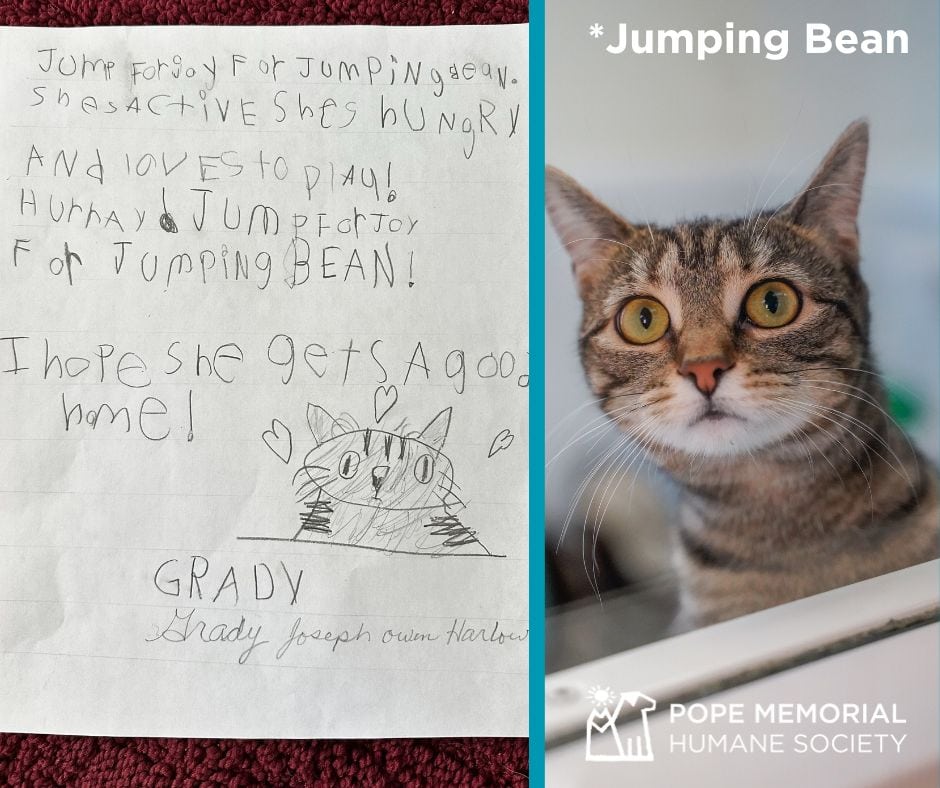 JUMP ForJoy For JUMPiNg BeaN.
SheSACtiVE SheS hUNgRy
ANd lOVESto plAy!
HUrrAy! JUMP ForJoy
For JUMpiNg BEAN!
I hope She getS A good
home!
GRADY
Grady Joseph owen Harlow
*Jumping Bean
POPE MEMORIAL
HUMANE SOCIETY